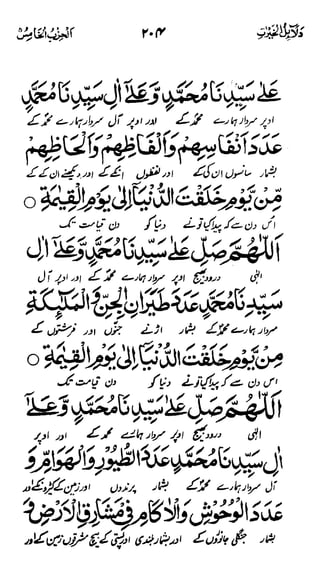 دلائل الخیرت ۲۰۴ الحزب الخامس
عَلٰى سَيِّدِنَا مُحَمَّدٍ وَّعَلٰٓى اٰلِ سَيِّدِنَا مُحَمَّدٍ
اوپر سردار ہمارے محمدؐ کے اور اوپر آل سردار ہمارے محمدؐ کے
عَدَدَ اَنْفَاسِهِمْ وَاَلْفَاظِهِمْ وَاَلْحَاظِهِمْ
بشمار سانسوں ان کی کے اور لفظوں انکے کے اور دیکھنے ان کے کے
مِّنْ يَّوْمِ خَلَقْتَ الدُّنْيَآ اِلٰى يَوْمِ الْقِيٰمَةِ ○
اس دن سے کہ پیدا کیا تو نے دنیا کو دن قیامت تک
اَللّٰهُمَّ صَلِّ عَلٰى سَيِّدِنَا مُحَمَّدٍ وَّعَلٰٓى اٰلِ
الٰہی درود بھیج اوپر سردار ہمارے محمدؐ کے اور اوپر آل
سَيِّدِنَا مُحَمَّدٍ عَدَدَ طَيَرَانِ الْجِنِّ وَالْمَلٰٓئِكَةِ
سردار ہمارے محمدؐ کے بشمار اڑنے جنوں اور فرشتوں کے
مِنْ يَّوْمِ خَلَقْتَ الدُّنْيَآ اِلٰى يَوْمِ الْقِيٰمَةِ ○
اس دن سے کہ پیدا کیا تو نے دنیا کو دن قیامت تک
اَللّٰهُمَّ صَلِّ عَلٰى سَيِّدِنَا مُحَمَّدٍ وَّعَلٰٓى
الٰہی درود بھیج اوپر سردار ہمارے محمدؐ کے اور اوپر
اٰلِ سَيِّدِنَا مُحَمَّدٍ عَدَدَ الطُّيُوْرِ وَالْهَوَآمِّ وَ
آل سردار ہمارے محمدؐ کے بشمار پرندوں اور زمین کے کیڑوں کے اور
عَدَدَ الْوُحُوْشِ وَالْاٰكَامِ فِيْ مَشَارِقِ الْاَرْضِ وَ
بشمار جنگلی جانوروں کے اور بشمار بلندی اور پستی کے بیچ مشرقوں زمین کے اور